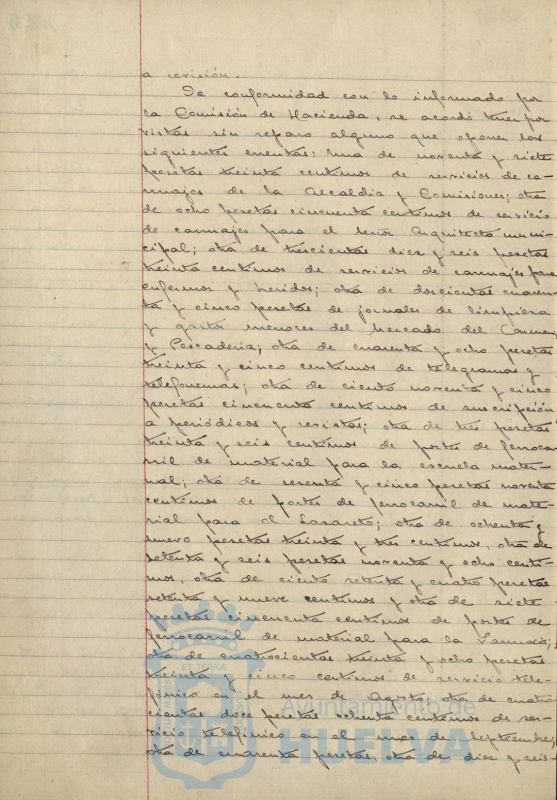 a revisión.
De conformidad con lo informado por
la Comisión de Hacienda, se acordó tener por
vistas sin reparo alguno que oponer las
siguientes cuentas: una de noventa y siete
pesetas treinta centimos de servicios de ca-
rruajes de la Alcaldia y Comisiones; otra
de ocho pesetas cincuenta centimos de servicio
de carruajes para el señor Arquitecto muni-
cipal; otra de trescientas diez y seis pesetas
treinta centimos de servicios de carruajes para
enfermos y heridos; otra de doscientas cuaren-
ta y cinco pesetas de jornales de limpieza
y gastos menores del Mercado del Carmen
y Pescaderia; otra de cuarenta y ocho pesetas
treinta y cinco centimos de telegramas y
telefonemas; otra de ciento noventa y cinco
pesetas cincuenta centimos de suscripción
a periódicos y revistas; otra de tres pesetas
treinta y seis centimos de portes de ferroca-
rril de material para la escuela mater-
nal; otra de sesenta y cinco pesetas noventa
centimos de portes de ferrocarril de mate-
rial para el Lazareto; otra de ochenta y
nueve pesetas treinta y tres centimos, otra de
setenta y seis pesetas noventa y ocho centi-
mos, otra de ciento setenta y cuatro pesetas
setenta y nueve centimos y otra de siete
pesetas cincuenta centimos de portes de
ferrocarril de material para la Farmacia;
otra de cuatrocientas treinta y ocho pesetas
treinta y cinco centimos de servicio tele-
fónico en el mes de Agosto; otra de cuatro-
cientas doce pesetas ochenta centimos de ser-
vicio telefónico en el mes de Septiembre;
otra de cuarenta pesetas, otra de diez y seis
Ayuntamiento de
HUELVA